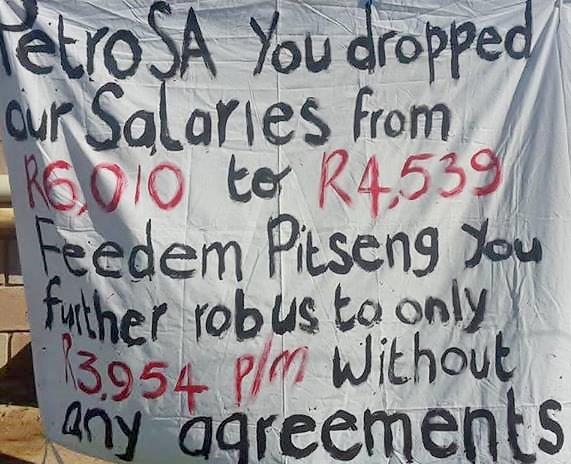 PetroSA You dropped
our Salaries from
R6,010 to R4,539
Feedem Pitseng You
further rob us to only
R3,954 p/m Without
any agreements